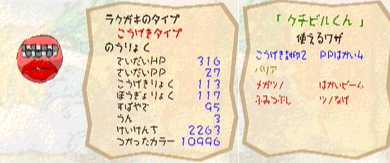 ラクガキのタイプ
こうげきタイプ
のうりょく
さいだいHP 316
さいだいPP 27
こうげきりょく 113
ぼうぎょりょく 117
すばやさ 95
うん 3
けいけんち 2263
つかったカラー 10996
「ケチビルくん」
使えるワザ
PPはかい4
バリア
メガツノ はかいビーム
ふみつぶし ツノなげ